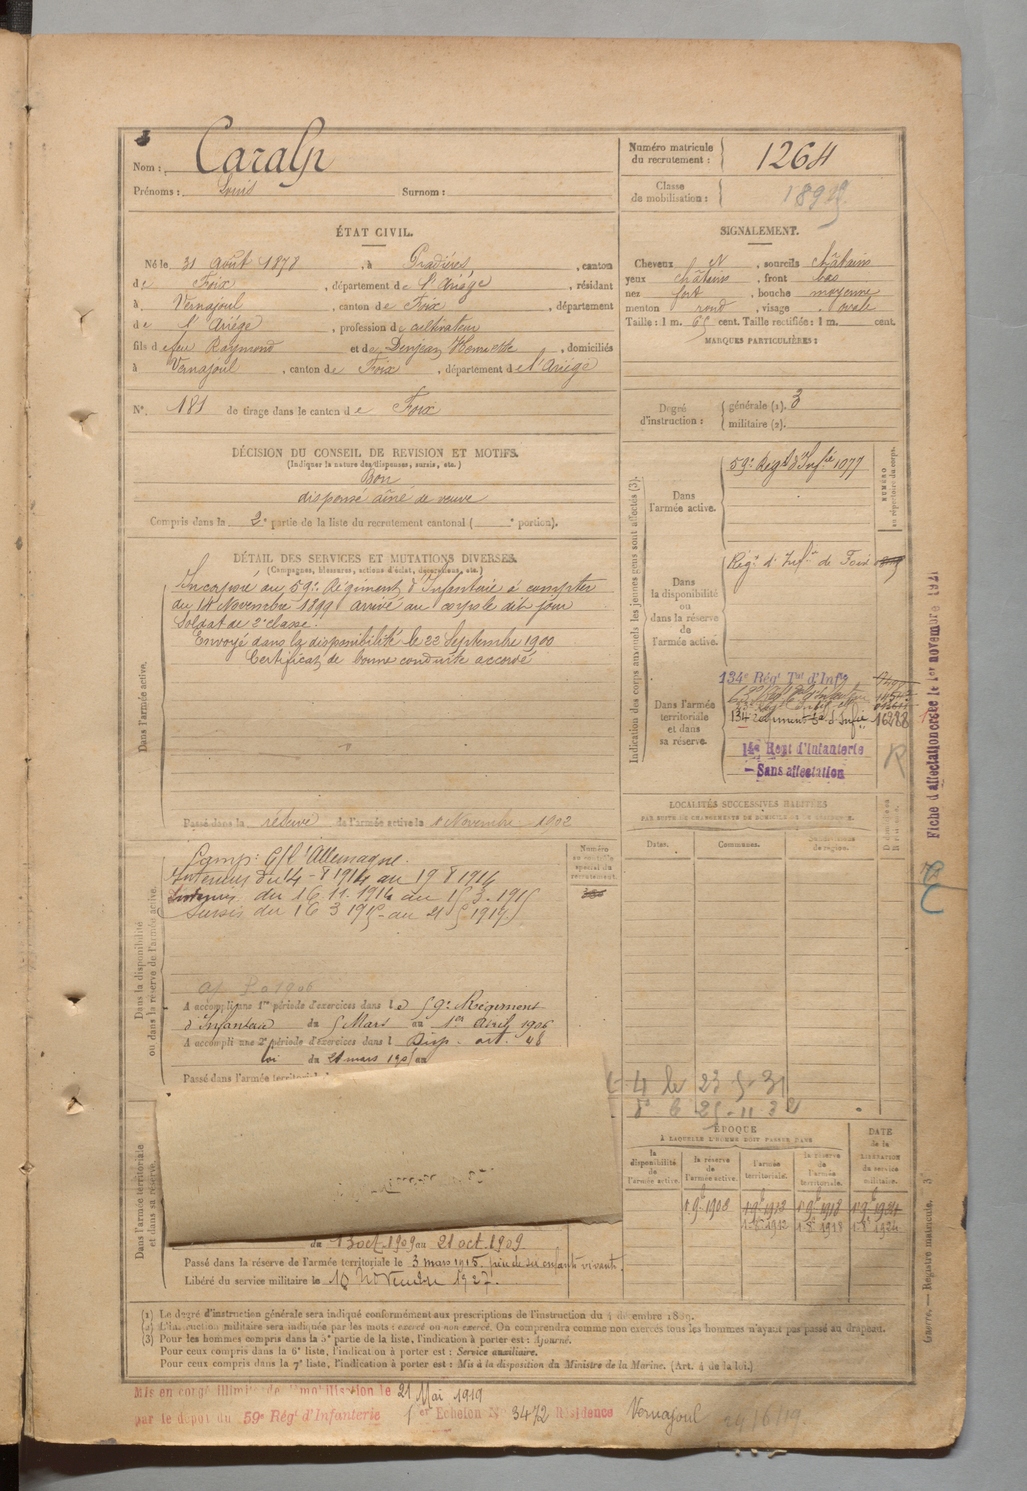 Nom : Caralp
Prénoms : Louis Surnom :
Numéro matricule du recrutement : 1264
Classe de mobilisation :
ÉTAT CIVIL.
Né le 31 Août 1878, à Pradières, canton
de Foix, département de l'Ariége, résidant
à Vernajoul, canton de Foix, département
de l'Ariége, profession de cultivateur
fils de feu Raymond et de Denjean Henriette, domiciliés
à Vernajoul, canton de Foix, département de l'Ariége
N°. 181 de tirage dans le canton de Foix
SIGNALEMENT.
Cheveux N, sourcils châtains
yeux châtains, front bas
nez fort, bouche moyenne
menton rond, visage ovale
Taille : 1 m. 65 cent. Taille rectifiée : 1 m. cent.
MARQUES PARTICULIÈRES :
Degré d'instruction : générale (1). 3
militaire (2).
DÉCISION DU CONSEIL DE REVISION ET MOTIFS.
(Indiquer la nature des dispenses, sursis, etc.)
Bon
dispensé aîné de veuve
Compris dans la 2e partie de la liste du recrutement cantonal ( e portion).
DÉTAIL DES SERVICES ET MUTATIONS DIVERSES.
(Campagnes, blessures, actions d'éclat, décorations, etc.)
Dans l'armée active.
Incorporé au 59e Régiment d'Infanterie à compter
du 14 Novembre 1899 arrivé au corps le dit jour
Soldat de 2e classe.
Envoyé dans la disponibilité le 22 Septembre 1900
Certificat de bonne conduite accordé
Passé dans la réserve de l'armée active le 1 Novembre 1902
Indication des corps auxquels les jeunes gens sont affectés (3).
NUMÉRO au répertoire du corps.
Dans l'armée active.
59e Régt d'Infie 1077
Dans la disponibilité ou dans la réserve de l'armée active.
Régt d'Infie de Foix
Dans l'armée territoriale et dans sa réserve.
134e Régt Tal d'Infie
134 régiment Tal d'Infie 16288
14e Regt d'Infanterie
Sans affectation
R
Fiche d'affectation créée le 1er novembre 1921
LOCALITÉS SUCCESSIVES HABITÉES
PAR SUITE DE CHANGEMENTS DE DOMICILE OU DE RÉSIDENCE.
Dates. Communes. Subdivisions de région.
Dans la disponibilité ou dans la réserve de l'armée active.
Numéro au contrôle spécial du recrutement.
Camp: C/ l'Allemagne.
Intérieur du 4-8 1914 au 19 8 1914
Intérieur du 16 11 1914 au 15 3. 1915
Sursis du 16 3 1915 au 21 5 1919
A accompli une 1re période d'exercices dans le 59e Régiment
d'Infanterie du 5 Mars au 1er Avril 1906
A accompli une 2e période d'exercices dans l Disp. art. 48
loi du 21 mars 1905 au
Passé dans l'armée territori
Dans l'armée territoriale et dans sa réserve.
ÉPOQUE
À LAQUELLE L'HOMME DOIT PASSER DANS
la disponibilité de l'armée active.
la réserve de l'armée active.
l'armée territoriale.
la réserve de l'armée territoriale.
DATE de la LIBÉRATION du service militaire.
du 13 oct. 1909 au 21 oct. 1909
Passé dans la réserve de l'armée territoriale le 3 mars 1915. père de six enfants vivants.
Libéré du service militaire le 10 Novembre 1927.
(1) Le degré d'instruction générale sera indiqué conformément aux prescriptions de l'instruction du 4 décembre 1889.
(2) L'instruction militaire sera indiquée par les mots : exercé ou non exercé. On comprendra comme non exercés tous les hommes n'ayant pas passé au drapeau.
(3) Pour les hommes compris dans la 5e partie de la liste, l'indication à porter est : Ajourné.
Pour ceux compris dans la 6e liste, l'indication à porter est : Service auxiliaire.
Pour ceux compris dans la 7e liste, l'indication à porter est : Mis à la disposition du Ministre de la Marine. (Art. 4 de la loi.)
Guerre. — Registre matricule. — 3
Mis en congé illimité de démobilisation le 21 Mai 1919
par le dépôt du 59e Régt d'Infanterie 5er Echelon N° 3472 Résidence Vernajoul